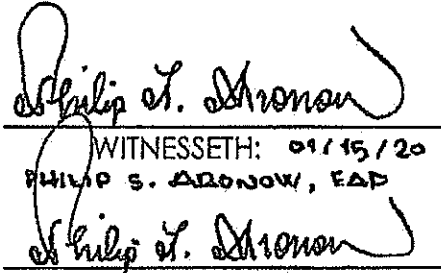 Philip S. Aronow
WITNESSETH: 01/15/20
PHILIP S. ARONOW, EAP
Philip S. Aronow